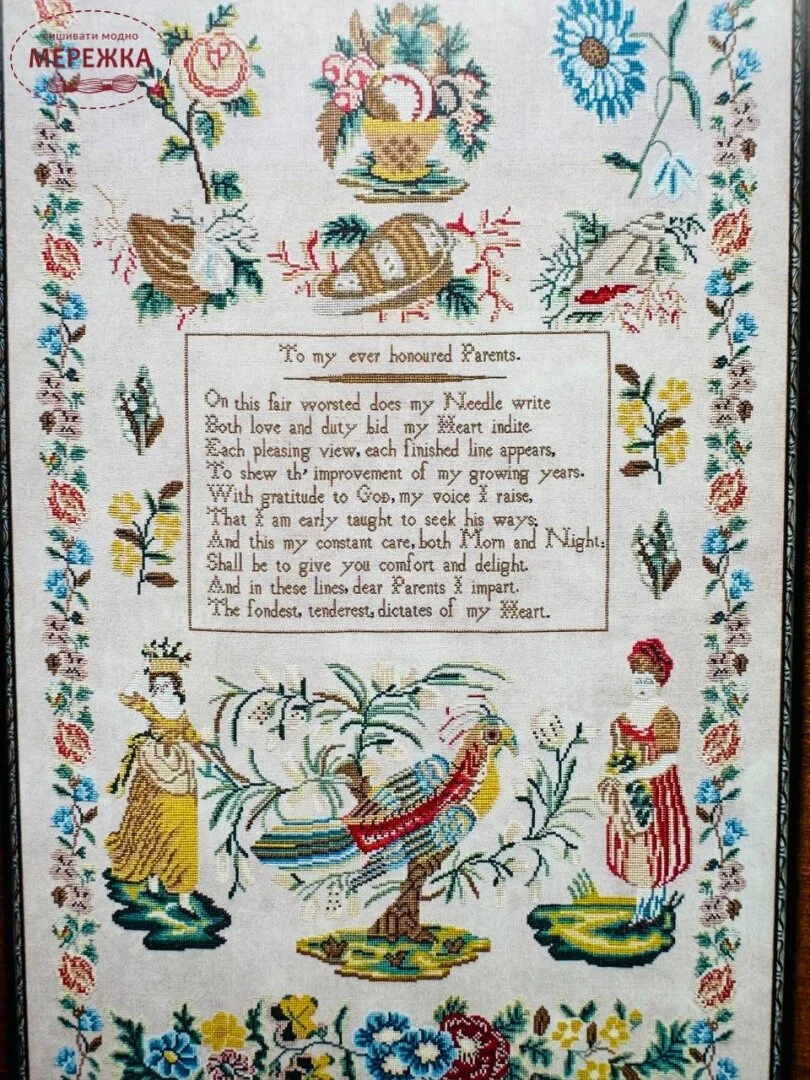 вишивати модно
МЕРЕЖКА
To my ever honoured Parents.
On this fair worsted does my Needle write
Both love and duty bid my Heart indite.
Each pleasing view, each finished line appears,
To shew th' improvement of my growing years.
With gratitude to GOD, my voice I raise,
That I am early taught to seek his ways;
And this my constant care, both Morn and Night;
Shall be to give you comfort and delight.
And in these lines, dear Parents I impart.
The fondest, tenderest, dictates of my Heart.